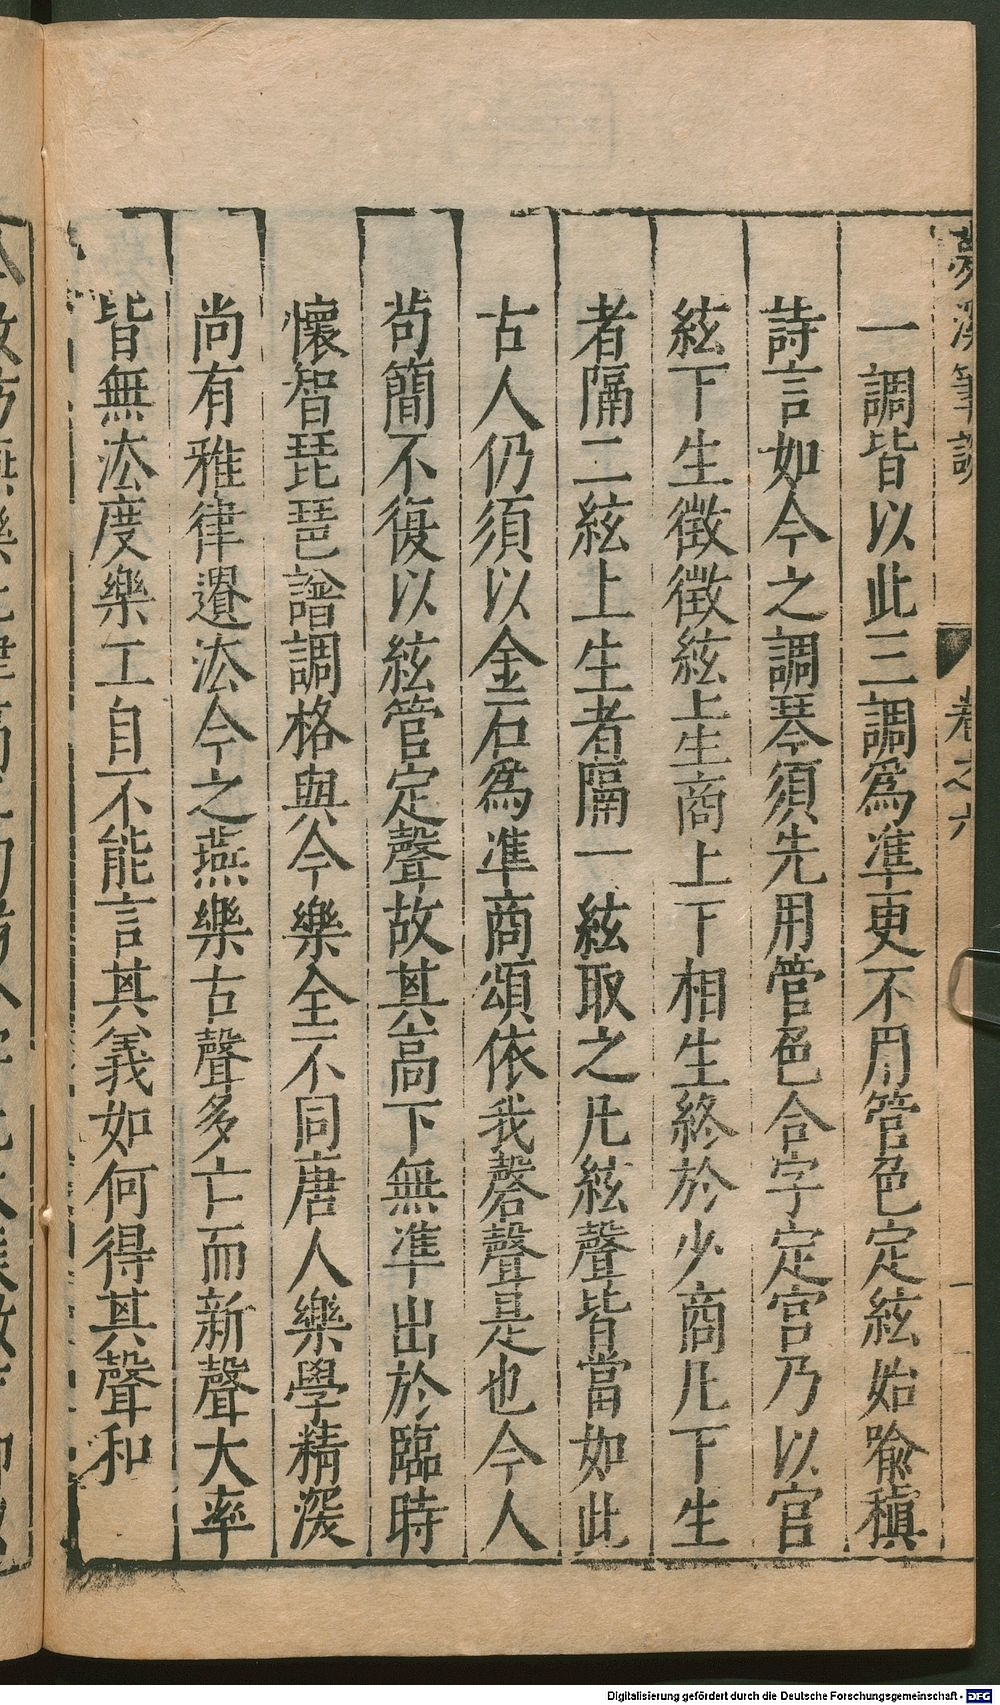 夢溪筆談 卷之六
一調皆以此三調爲準更不用管色定絃始喻稹
詩言如今之調琴須先用管色合字定宮乃以宮
絃下生徵徵絃上生商上下相生終於少商凡下生
者隔二絃上生者隔一絃取之凡絃聲皆當如此
古人仍須以金石爲準商頌依我磬聲是也今人
茍簡不復以絃管定聲故其高下無準出於臨時
懷智琵琶譜調格與今樂全不同唐人樂學精深
尚有雅律遺法今之燕樂古聲多亡而新聲大率
皆無法度樂工自不能言其義如何得其聲和
Digitalisierung gefördert durch die Deutsche Forschungsgemeinschaft - DFG